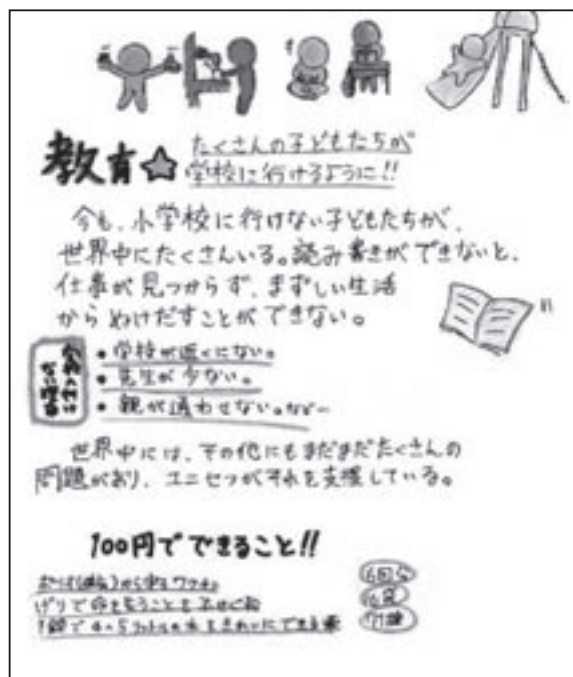 教育☆ たくさんの子どもたちが
学校に行けるように!!
今も、小学校に行けない子どもたちが、
世界中にたくさんいる。読み書きができないと、
仕事が見つからず、まずしい生活
からぬけだすことができない。
学校に行けない理由
・学校が近くにない。
・先生が少ない。
・親が通わせない。など…
世界中には、その他にもまだまだたくさんの
問題があり、ユニセフがそれを支援している。
100円でできること!!
から守るワクチン
げりで命を失うことをふせぐ
1錠で4~5リットルの水をきれいにできる薬